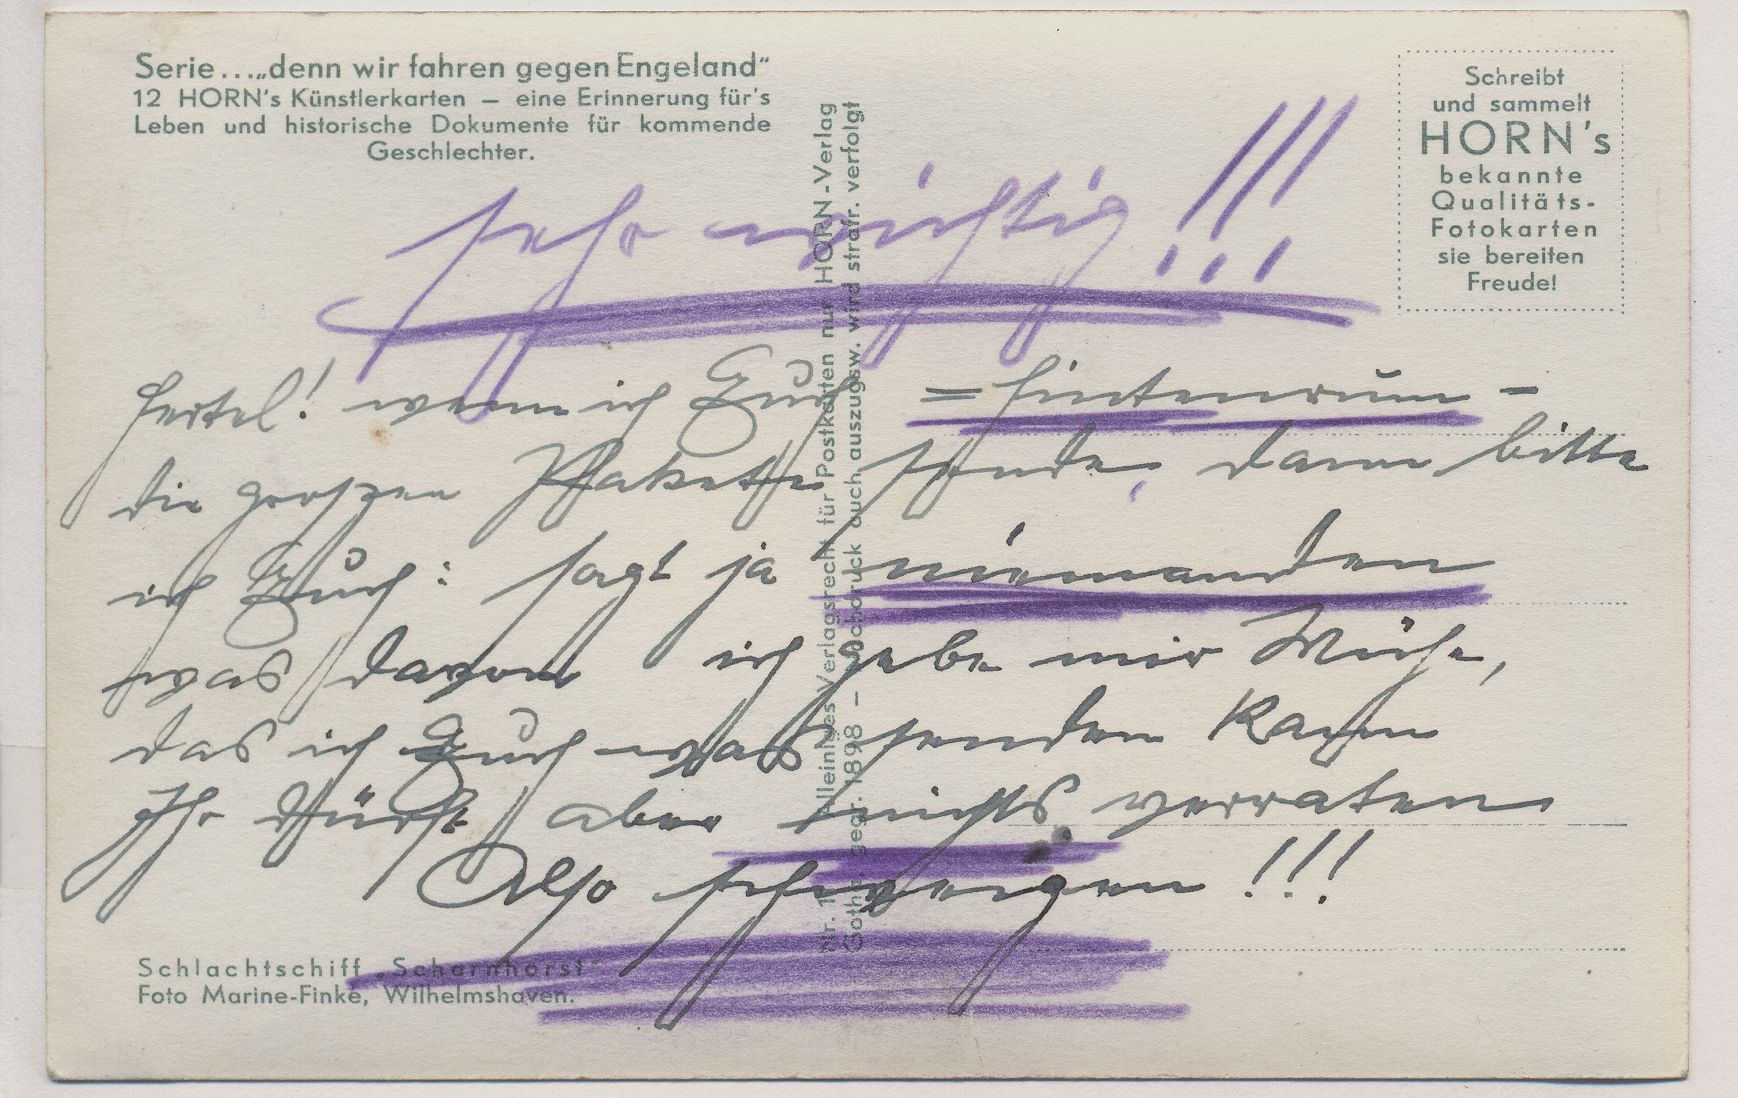 Serie...„denn wir fahren gegen Engeland"
12 HORN's Künstlerkarten — eine Erinnerung für's
Leben und historische Dokumente für kommende
Geschlechter.
Schreibt
und sammelt
HORN's
bekannte
Qualitäts-
Fotokarten
sie bereiten
Freude!
sehr wichtig!!!
wenn ich Euch = hintenrum -
die groszen Pakete sende, dann bitte
ich Euch: sagt ja niemanden
was davon ich gebe mir Mühe,
das ich Euch was senden kann
Ihr dürft aber nichts verraten.
Also schweigen!!!
Alleiniges Verlagsrecht für Postkarten nur HORN-Verlag
Gotha. gegr. 1898 — Nachdruck auch auszugsw. wird strafr. verfolgt
Schlachtschiff „Scharnhorst"
Foto Marine-Finke, Wilhelmshaven.